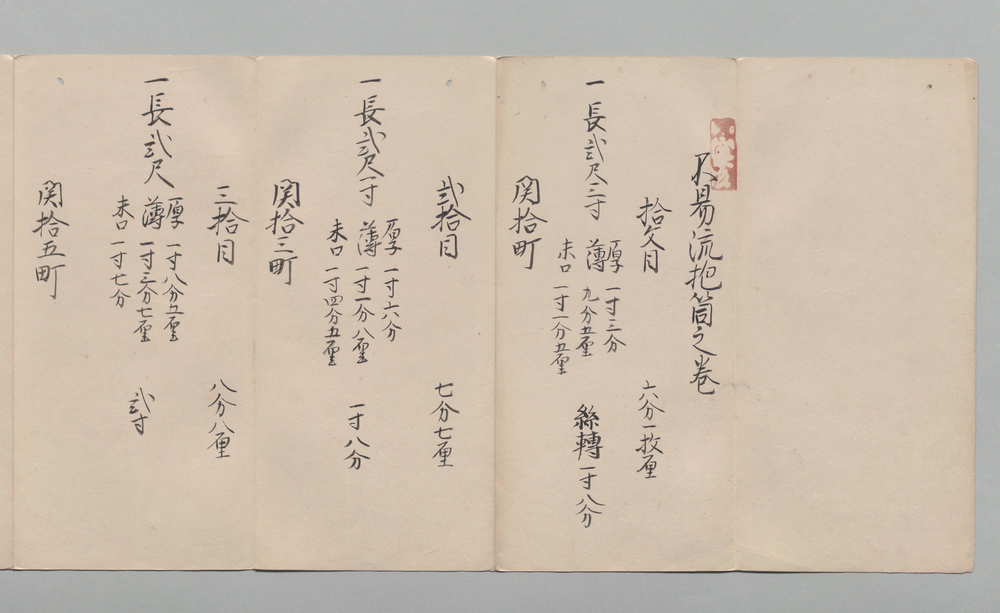 不易流抱筒之巻
拾文目 六分一枚厘
一長弐尺三寸 厚 一寸三分
薄 九分五厘
末口 一寸一分五厘
絲轉 一寸八分
関拾町
弐拾目 七分七厘
一長弐尺一寸 厚 一寸六分
薄 一寸一分八厘
末口 一寸四分五厘
一寸八分
関拾三町
三拾目 八分八厘
一長弐尺 厚 一寸八分五厘
薄 一寸三分七厘
末口 一寸七分
弐寸
関拾五町